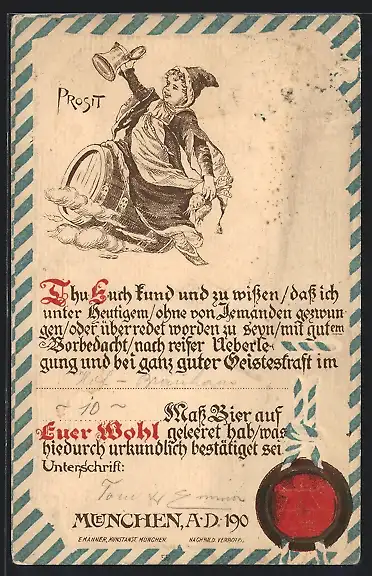 PROSIT
Thu Euch kund und zu wißen/daß ich
unter Heutigem/ohne von Jemanden gezwun
gen/oder überredet worden zu seyn/mit gutem
Vorbedacht/nach reifer Ueberle-
gung und bei ganz guter Geisteskraft im
Hof-Bräuhaus
~ 10 ~ Maß Bier auf
Euer Wohl geleeret hab/was
hiedurch urkundlich bestätiget sei
Unterschrift:
Toni &
MUENCHEN, A.D. 190
E.MANNER, KUNSTANST. MÜNCHEN. NACHBILD. VERBOTEN.